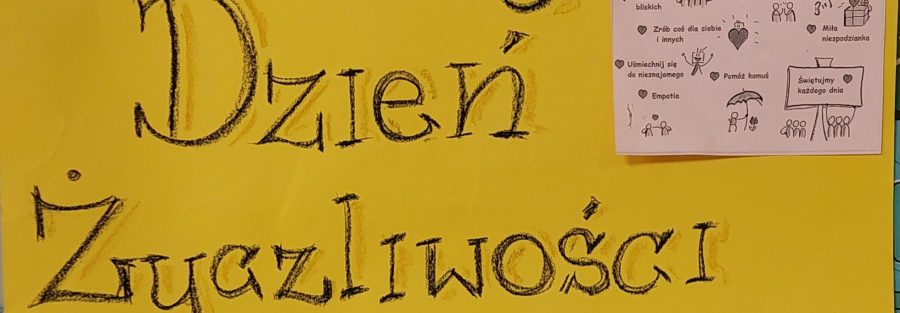 Dzień
Życzliwości
bliskich
Zrób coś dla siebie
i innych
Miła
niespodzianka
Uśmiechnij się
do nieznajomego
Pomóż komuś
Świętujmy
każdego dnia
Empatia